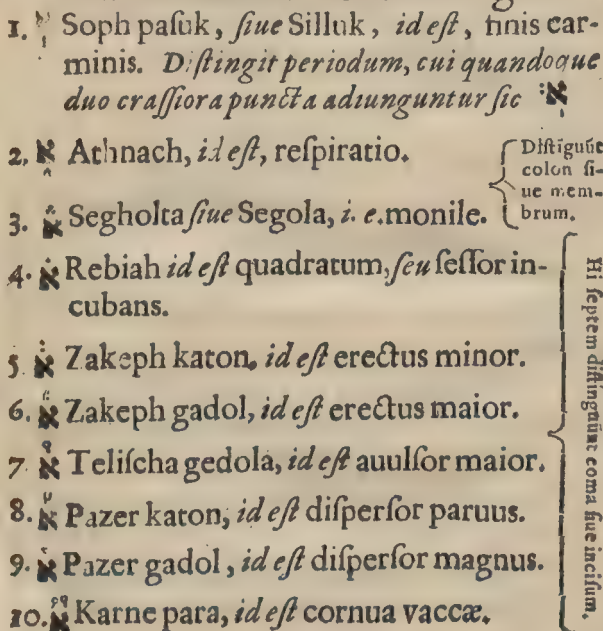 1. א Soph paſuk, ſiue Silluk, id eſt, finis car-
minis. Diſtingit periodum, cui quandoque
duo craſſiora puncta adiunguntur ſic א׃
2. א֑ Athnach, id eſt, reſpiratio.
3. א֒ Segholta ſiue Segola, i. e. monile.
Diſtigūūt
colon ſi-
ue mem-
brum.
4. א֗ Rebiah id eſt quadratum, ſeu ſeſſor in-
cubans.
5. א֔ Zakeph katon, id eſt erectus minor.
6. א֕ Zakeph gadol, id eſt erectus maior.
7. א֠ Teliſcha gedola, id eſt auulſor maior.
8. א֡ Pazer katon, id eſt diſperſor paruus.
9. א Pazer gadol, id eſt diſperſor magnus.
10. א֟ Karne para, id eſt cornua vaccæ.
Hi ſeptem diſtingūūt coma ſiue inciſum.